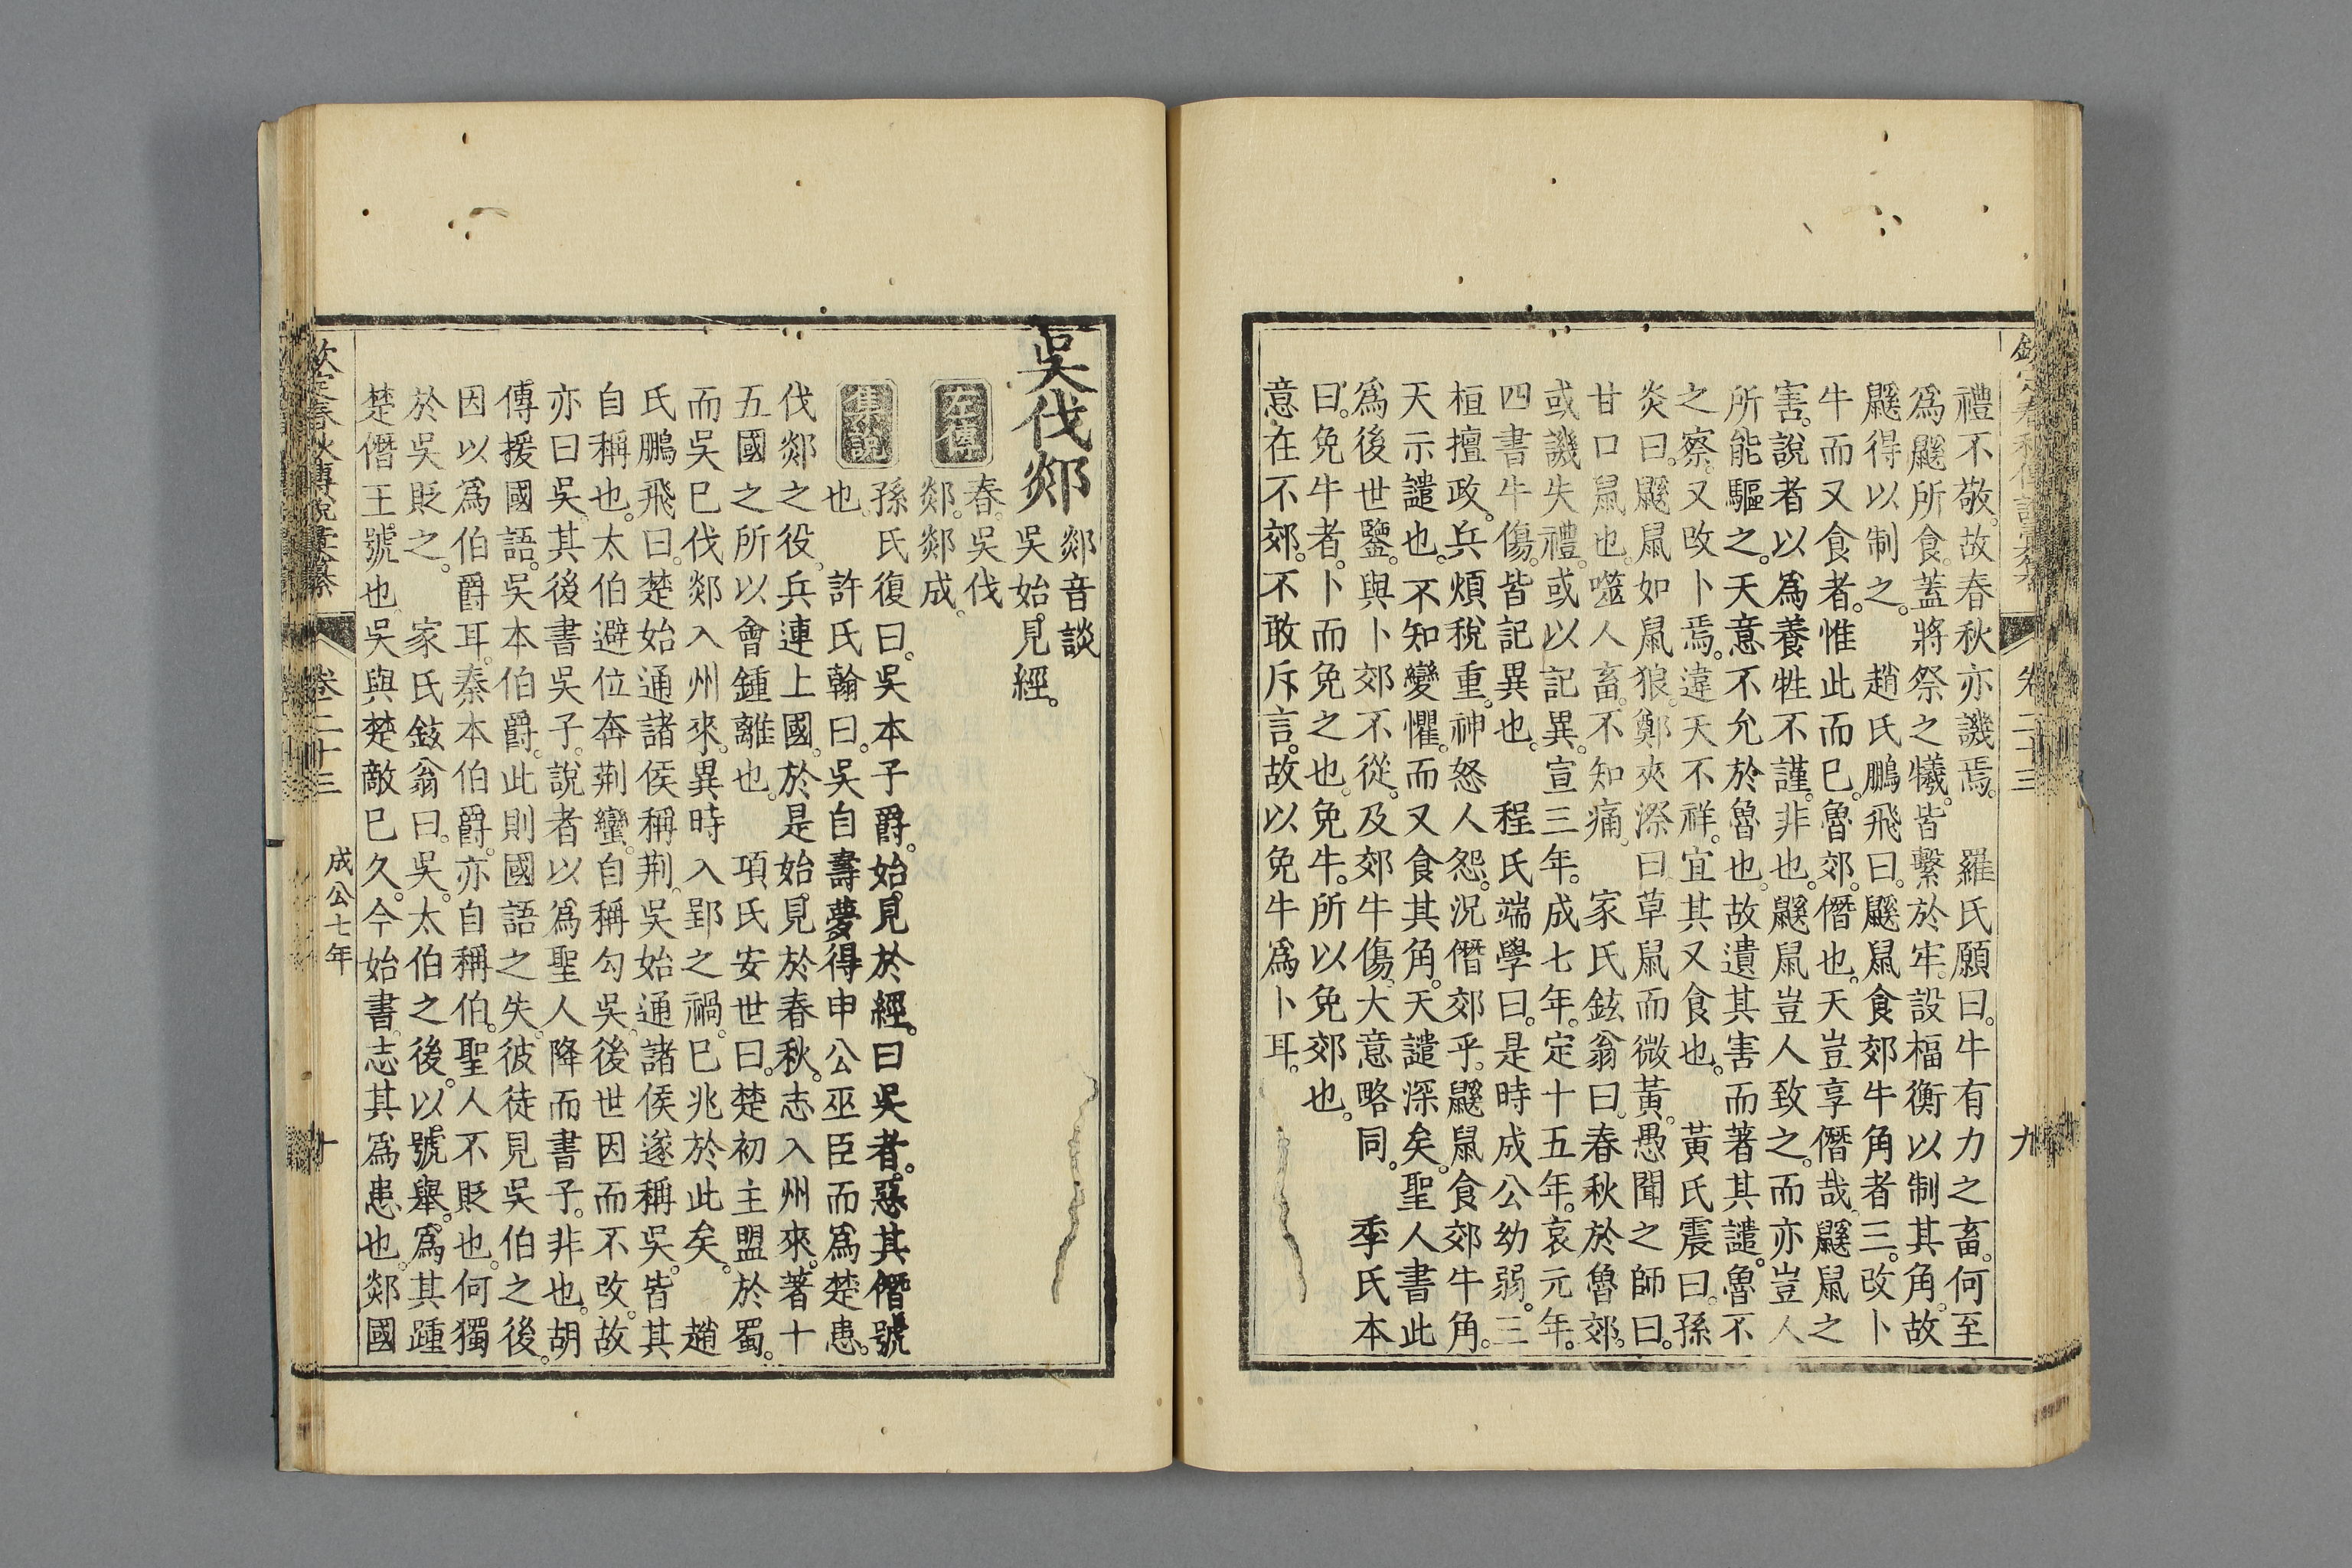 禮不敬。故春秋亦譏焉。　羅氏願曰。牛有力之畜。何至
爲鼷所食。蓋將祭之犧。皆繫於牢。設楅衡以制其角。故
鼷得以制之。　趙氏鵬飛曰。鼷鼠食郊牛角者三。改卜
牛而又食者。惟此而已。魯郊。僭也。天豈享僭哉。鼷鼠之
害。說者以爲養牲不謹。非也。鼷鼠豈人致之。而亦豈人
所能驅之。天意不允於魯也。故遺其害而著其譴。魯不
之察。又改卜焉。違天不祥。宜其又食也。　黃氏震曰。孫
炎曰。鼷鼠如鼠狼。鄭夾漈曰。草鼠而微黃。愚聞之師曰。
甘口鼠也。噬人畜。不知痛。　家氏鉉翁曰。春秋於魯郊。
或譏失禮。或以記異。宣三年。成七年。定十五年。哀元年。
四書牛傷。皆記異也。　程氏端學曰。是時成公幼弱。三
桓擅政。兵煩稅重。神怒人怨。況僭郊乎。鼷鼠食郊牛角。
天示譴也。不知變懼。而又食其角。天譴深矣。聖人書此
爲後世鑒。與卜郊不從。及郊牛傷。大意略同。　季氏本
曰。免牛者。卜而免之也。免牛。所以免郊也。
意在不郊。不敢斥言。故以免牛爲卜耳。
卷二十三
九
吳伐郯
郯音談
吳始見經。
左傳
春。吳伐
郯。郯成。
集說
孫氏復曰。吳本子爵。始見於經。曰吳者。惡其僭號
也。　許氏翰曰。吳自壽夢得申公巫臣而爲楚患。
伐郯之役。兵連上國。於是始見於春秋。志入州來。著十
五國之所以會鍾離也。　項氏安世曰。楚初主盟於蜀。
而吳已伐郯入州來。異時入郢之禍。已兆於此矣。　趙
氏鵬飛曰。楚始通諸侯稱荆。吳始通諸侯遂稱吳。皆其
自稱也。太伯避位奔荆蠻。自稱勾吳。後世因而不改。故
亦曰吳。其後書吳子。說者以爲聖人降而書子。非也。胡
傳援國語。吳本伯爵。此則國語之失。彼徒見吳伯之後。
因以爲伯爵耳。秦本伯爵。亦自稱伯。聖人不貶也。何獨
於吳貶之。　家氏鉉翁曰。吳。太伯之後。以號舉。爲其踵
楚僭王號也。吳與楚敵已久。今始書。志其爲患也。郯國
欽定春秋傳說彙纂
卷二十三
成公七年
十